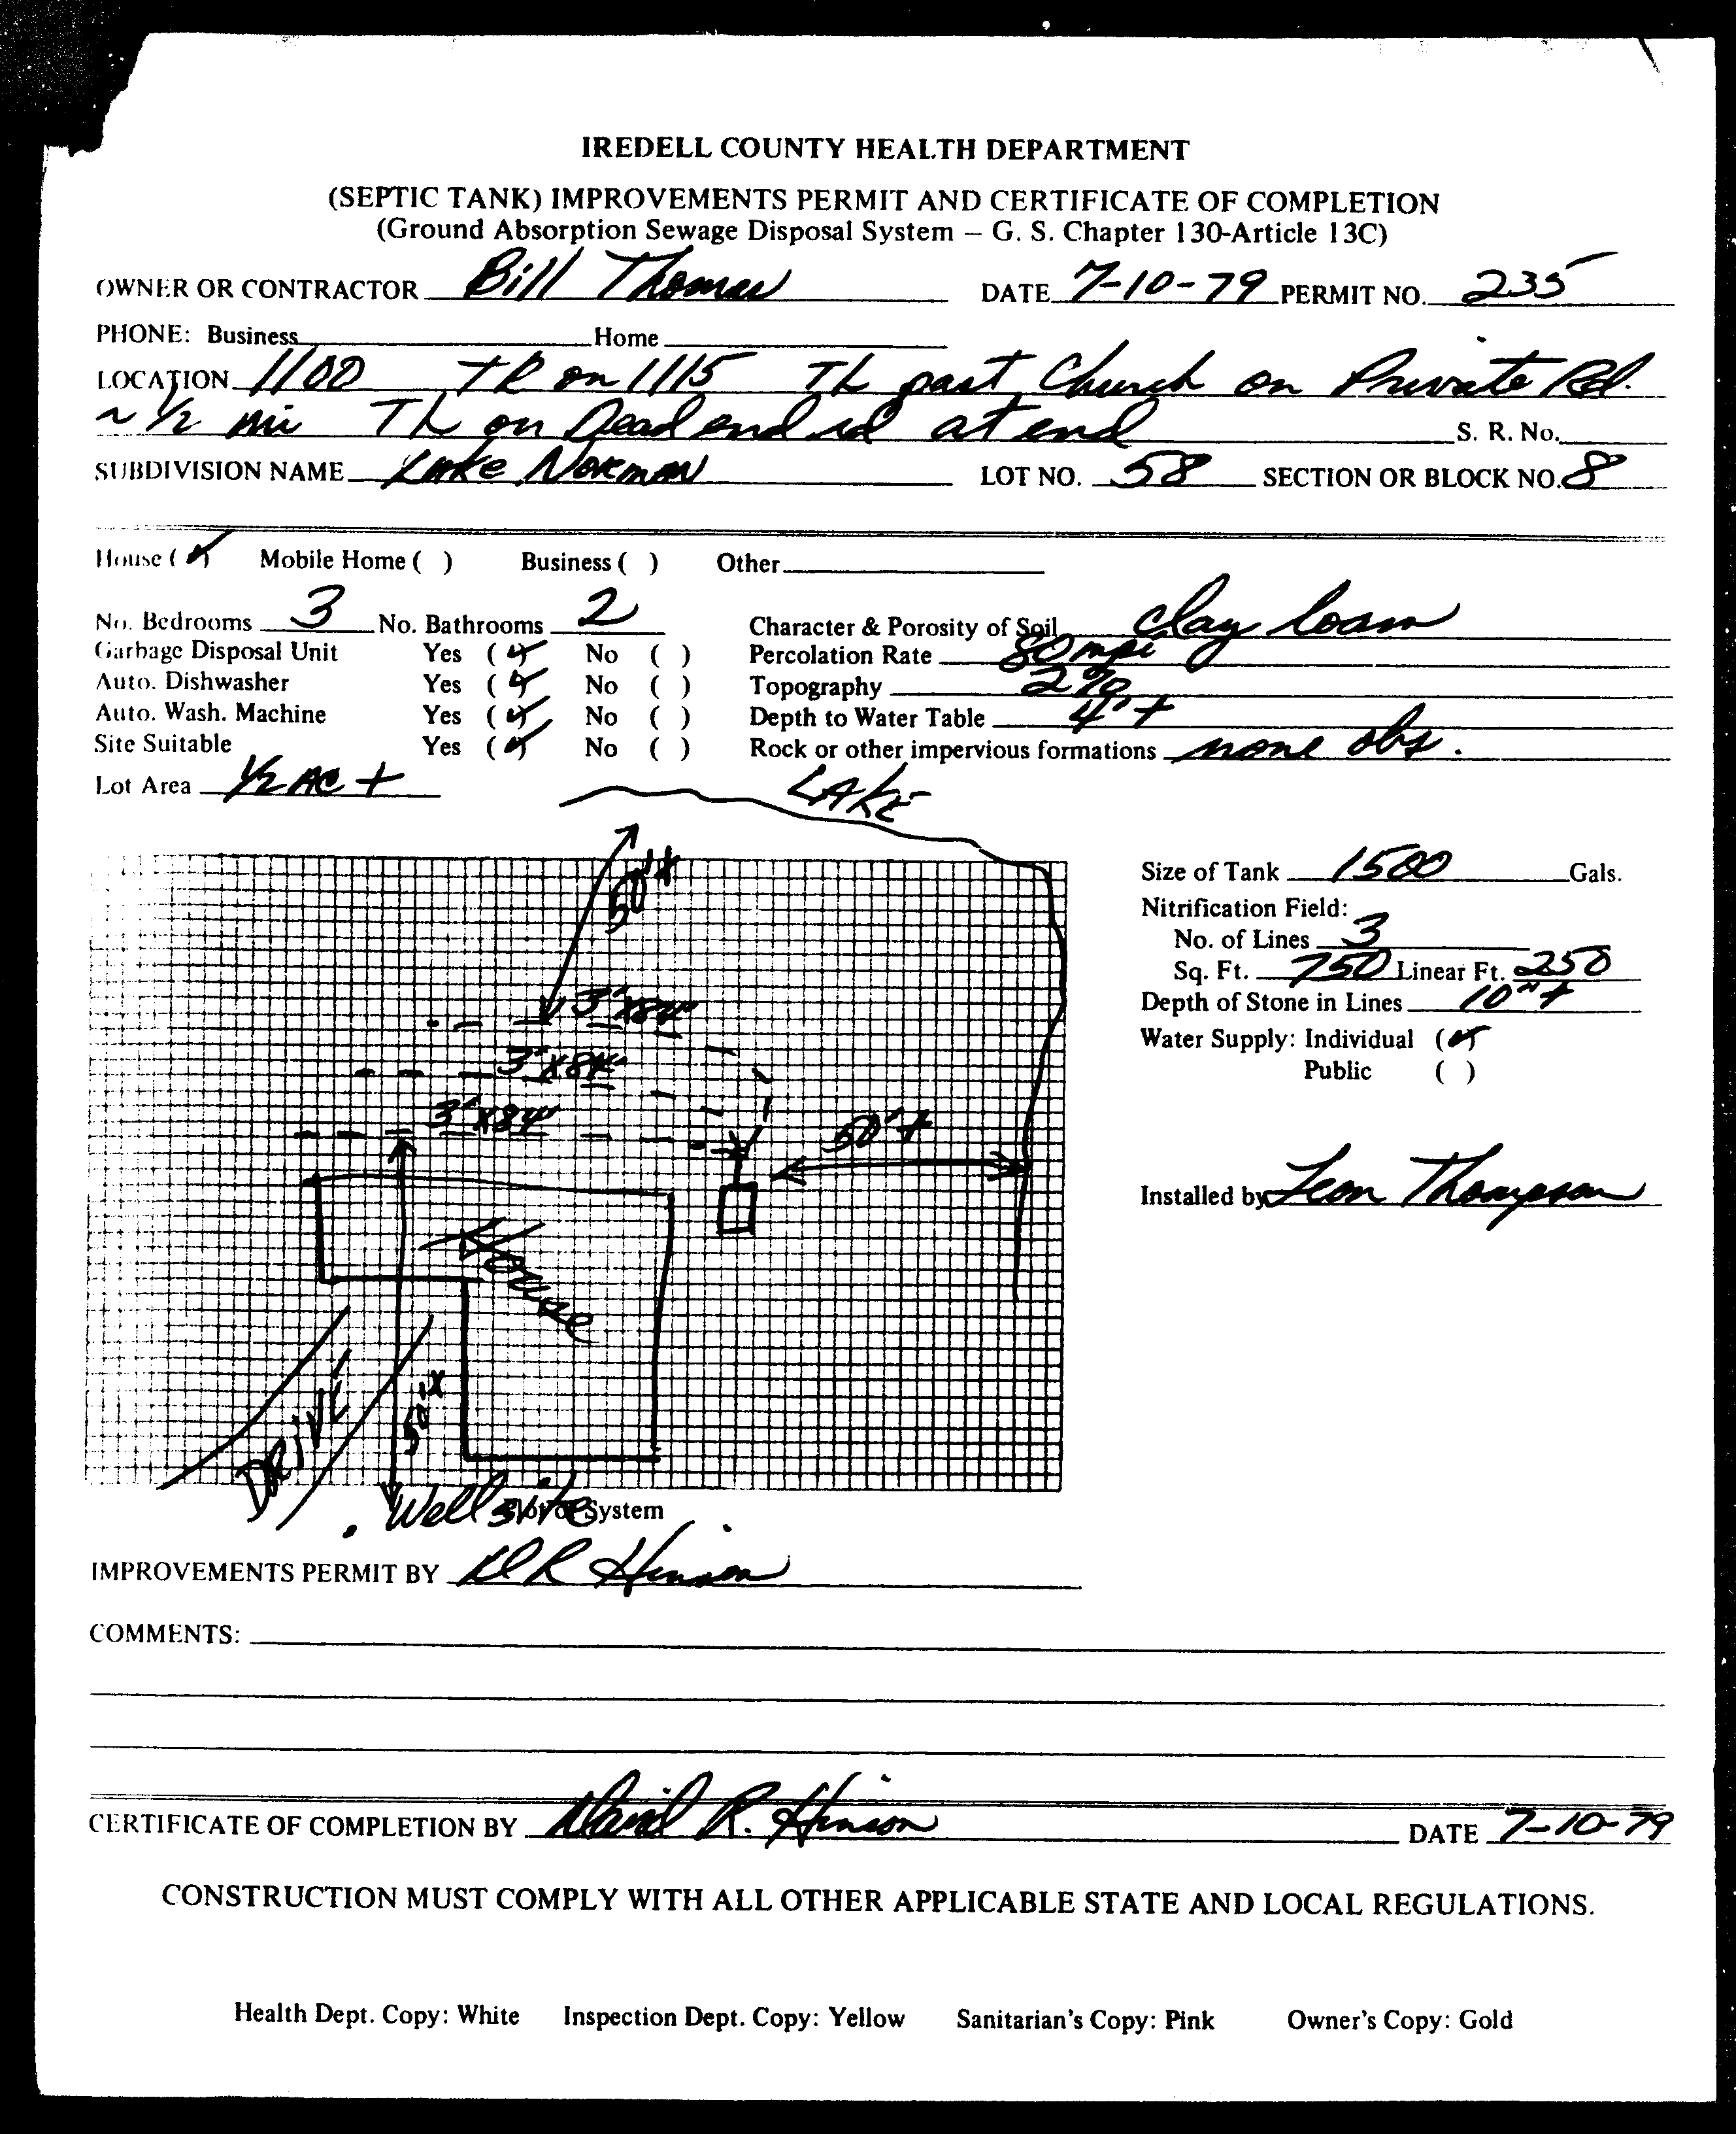 IREDELL COUNTY HEALTH DEPARTMENT
(SEPTIC TANK) IMPROVEMENTS PERMIT AND CERTIFICATE OF COMPLETION
(Ground Absorption Sewage Disposal System – G. S. Chapter 130-Article 13C)
OWNER OR CONTRACTOR Bill Thomas DATE 7-10-79 PERMIT NO. 235
PHONE: Business Home
LOCATION 1100 TR on 1115 TL past Church on Private Rd.
~ 1/2 mi TL on Dead end rd at end S. R. No.
SUBDIVISION NAME Lake Norman LOT NO. 58 SECTION OR BLOCK NO. 8
House (✓) Mobile Home ( ) Business ( ) Other
No. Bedrooms 3 No. Bathrooms 2 Character & Porosity of Soil clay loam
Garbage Disposal Unit Yes (✓) No ( ) Percolation Rate 80 mpi
Auto. Dishwasher Yes (✓) No ( ) Topography 2%
Auto. Wash. Machine Yes (✓) No ( ) Depth to Water Table 4'+
Site Suitable Yes (✓) No ( ) Rock or other impervious formations none obs.
Lot Area 1/2 AC +
LAKE
50'+
Size of Tank 1500 Gals.
Nitrification Field:
No. of Lines 3
Sq. Ft. 750 Linear Ft. 250
Depth of Stone in Lines 10"+
Water Supply: Individual (✓)
Public ( )
3'x84'
3'x84'
3'x84'
50'+
Installed by Leon Thompson
House
DRIVE
50'+
Well site
Plot of System
IMPROVEMENTS PERMIT BY D R Hinson
COMMENTS:
CERTIFICATE OF COMPLETION BY David R. Hinson DATE 7-10-79
CONSTRUCTION MUST COMPLY WITH ALL OTHER APPLICABLE STATE AND LOCAL REGULATIONS.
Health Dept. Copy: White Inspection Dept. Copy: Yellow Sanitarian's Copy: Pink Owner's Copy: Gold